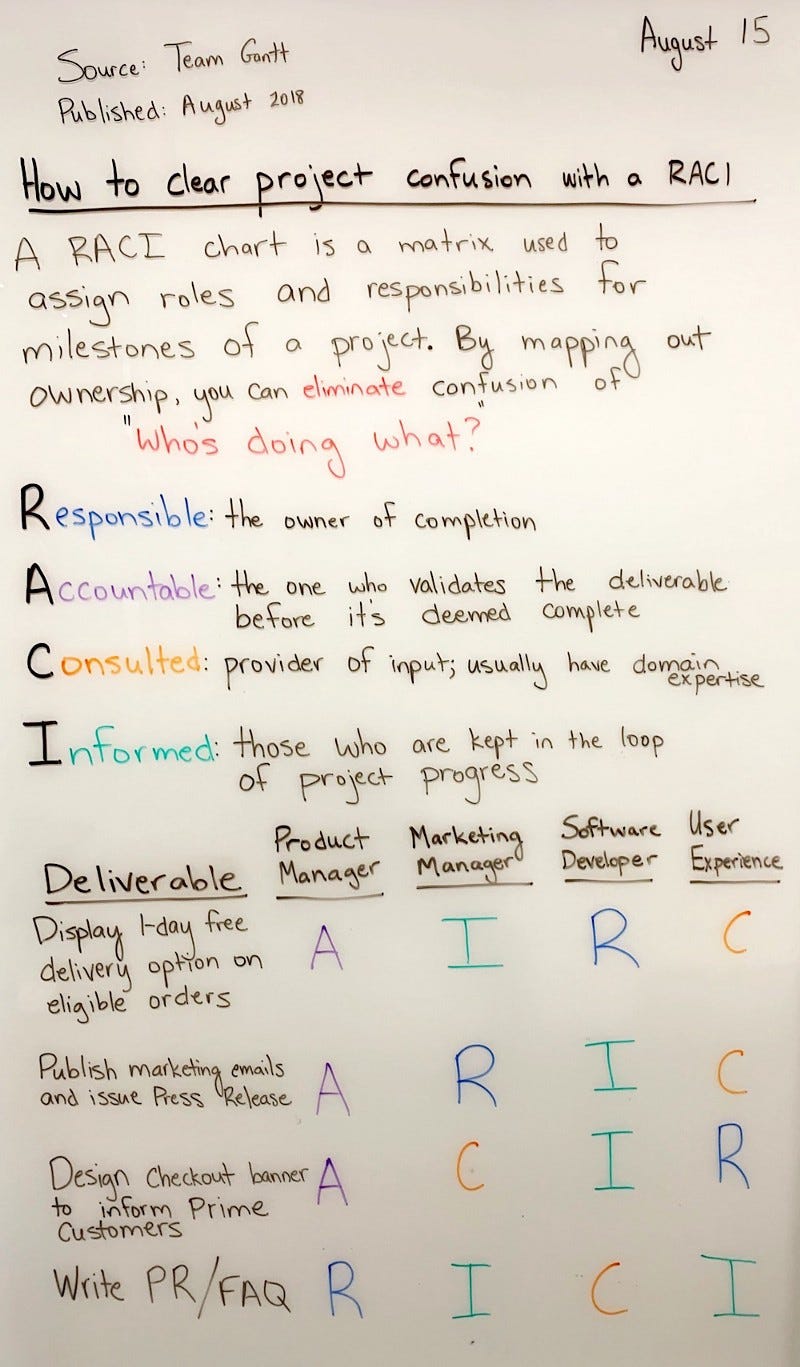 August 15
Source: Team Gantt
Published: August 2018
How to clear project confusion with a RACI
A RACI chart is a matrix used to
assign roles and responsibilities for
milestones of a project. By mapping out
ownership, you can eliminate confusion of
"Who's doing what?"
Responsible: the owner of completion
Accountable: the one who validates the deliverable
before it's deemed complete
Consulted: provider of input; usually have domain
expertise
Informed: those who are kept in the loop
of project progress
Product Marketing Software User
Deliverable Manager Manager Developer Experience
Display 1-day free
delivery option on A I R C
eligible orders
Publish marketing emails
and issue Press Release A R I C
Design Checkout banner A C I R
to inform Prime
Customers
Write PR/FAQ R I C I